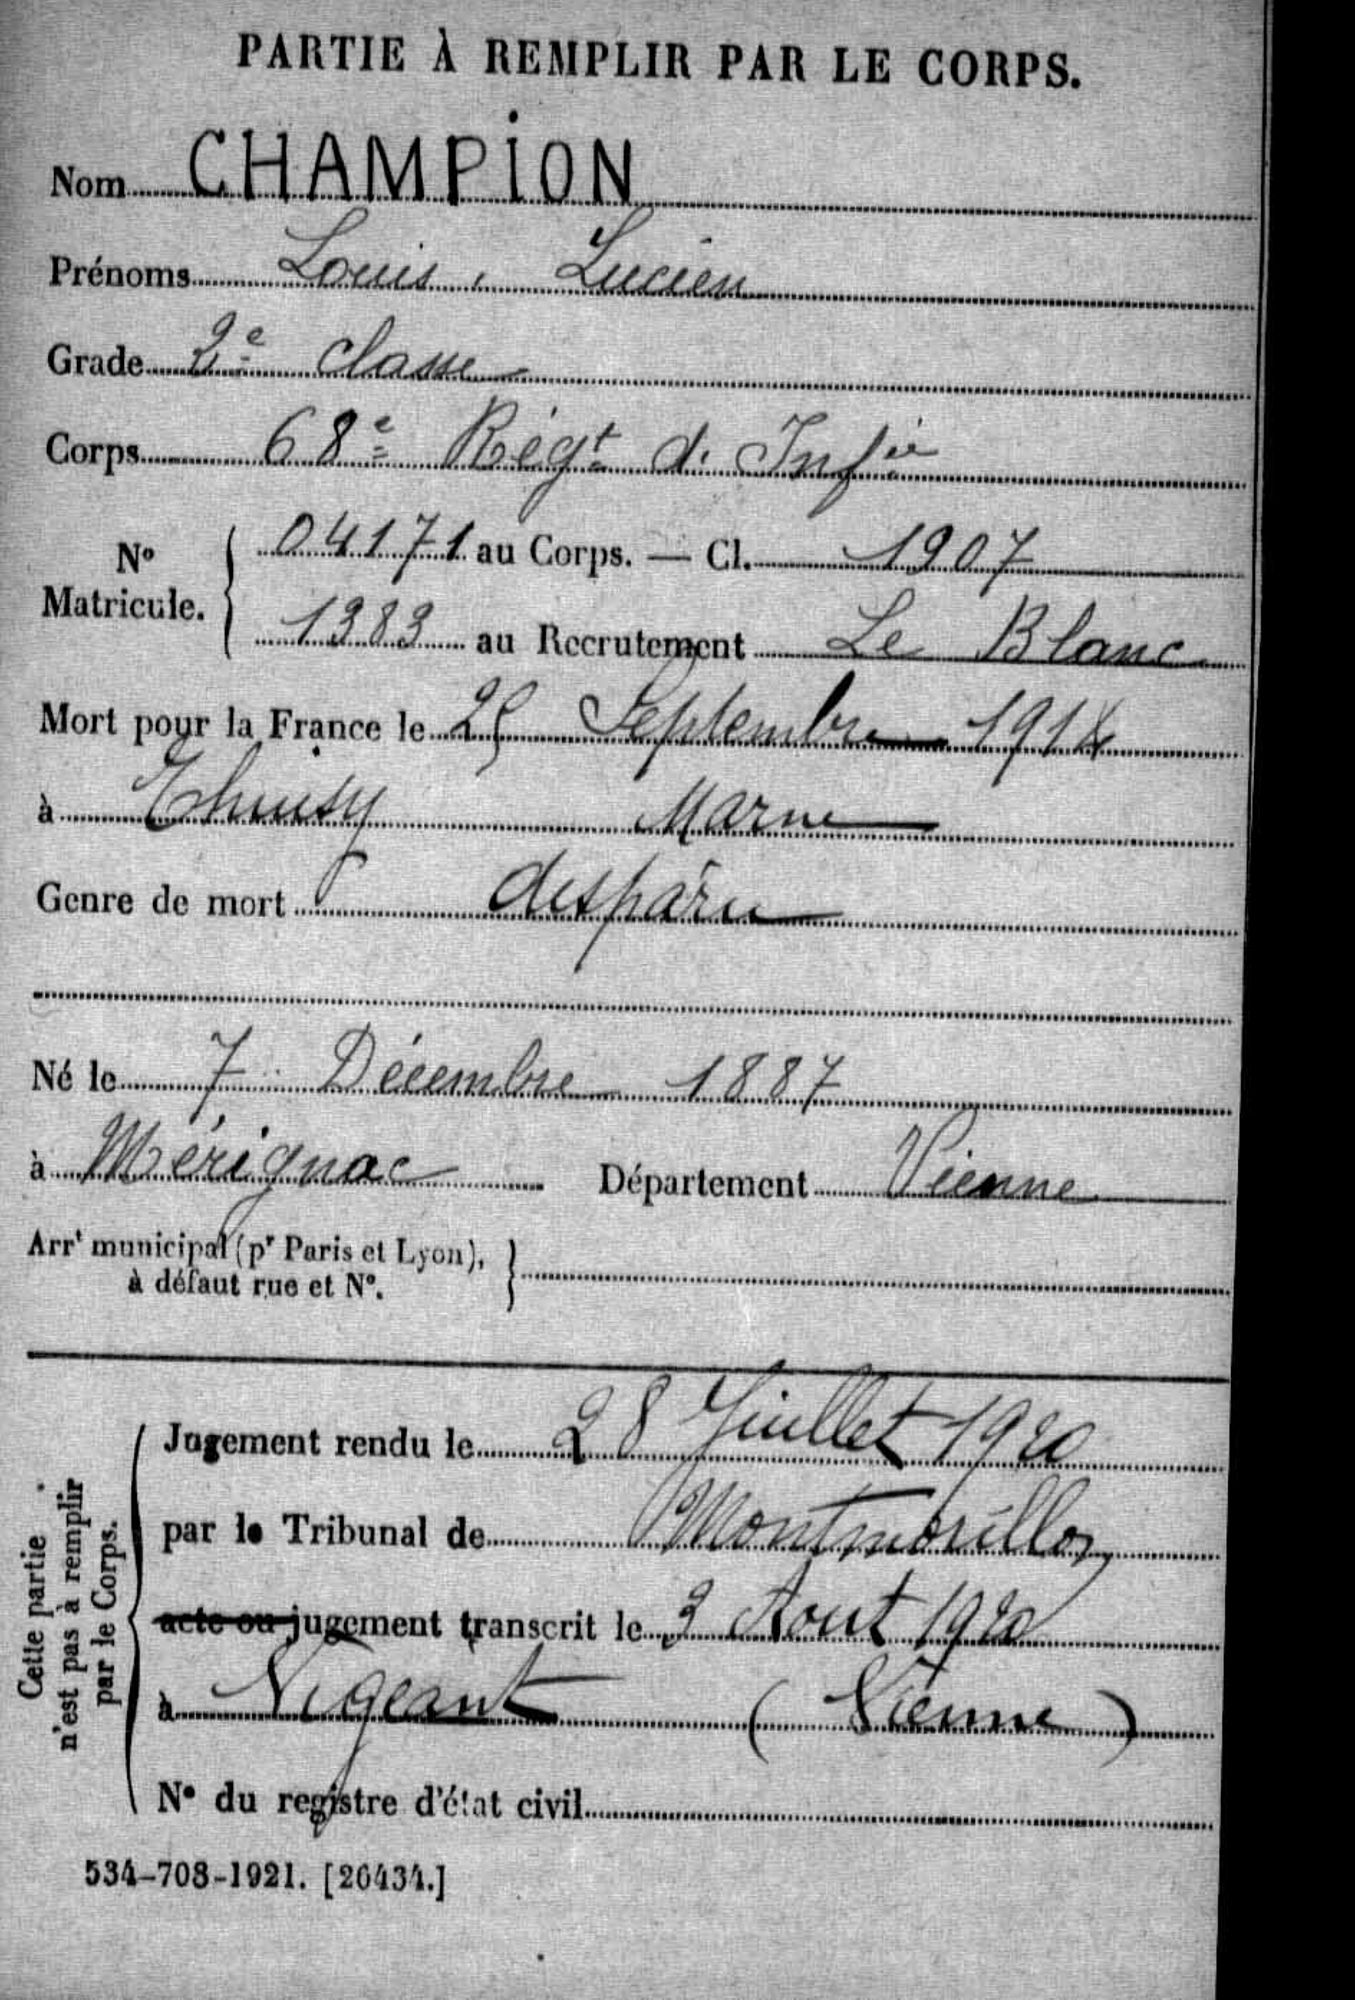 PARTIE À REMPLIR PAR LE CORPS.
Nom CHAMPION
Prénoms Louis, Lucien
Grade 2e classe
Corps 68e Régt d. Infie
No Matricule. { 04171 au Corps. — Cl. 1907
1383 au Recrutement Le Blanc
Mort pour la France le 25 Septembre 1914
à Thuisy Marne
Genre de mort disparu
Né le 7 Décembre 1887
à Mérignac Département Vienne
Arrt municipal (pr Paris et Lyon),
à défaut rue et No.
Cette partie
n'est pas à remplir
par le Corps.
Jugement rendu le 28 Juillet 1920
par le Tribunal de Montmorillon
acte ou jugement transcrit le 3 Aout 1920
à Vigeant (Vienne)
No du registre d'état civil
534-708-1921. [26434.]